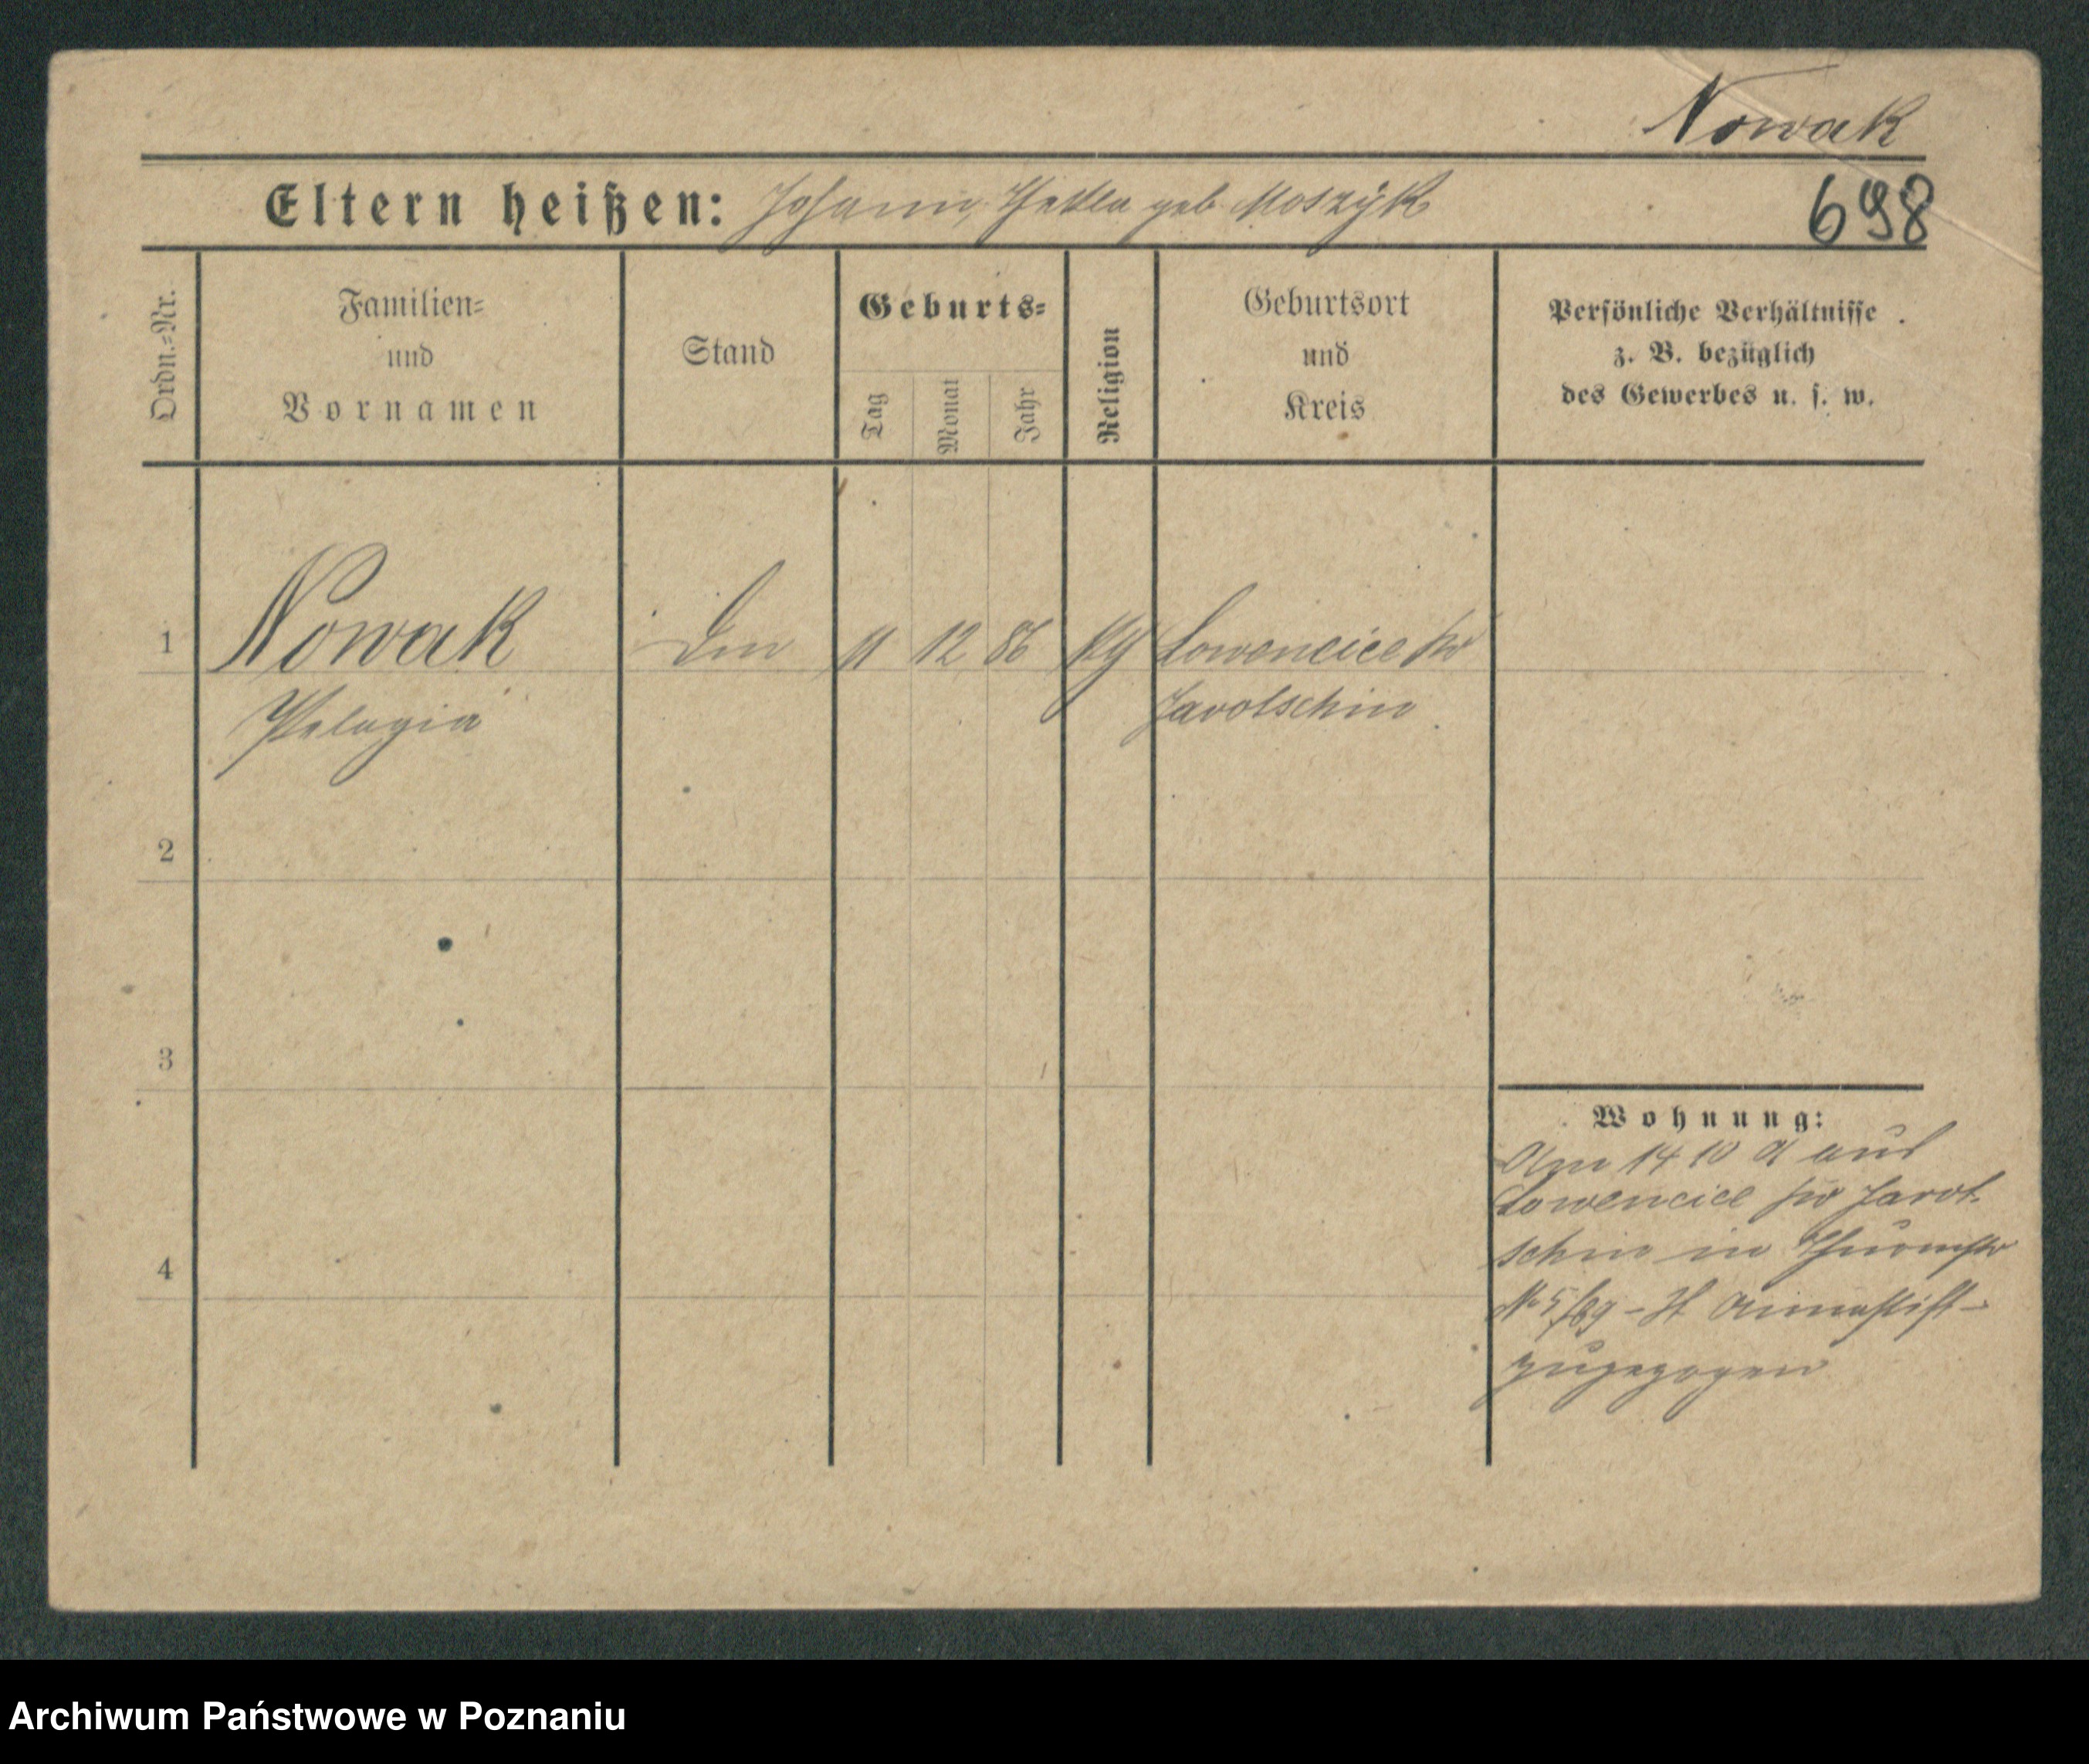 Nowak
Eltern heißen: Johann, Thekla geb Moszyk
698
Ordn.-Nr.
Familien-
und
Vornamen
Stand
Geburts-
Tag
Monat
Jahr
Religion
Geburtsort
und
Kreis
Persönliche Verhältnisse
z. B. bezüglich
des Gewerbes u. s. w.
1
Nowak
12 86
Lowencice Kr
Pelagia
Jarotschin
2
3
4
Wohnung:
14 10 aus
Lowencice Kr Jarot-
schin in
zugezogen
Archiwum Państwowe w Poznaniu